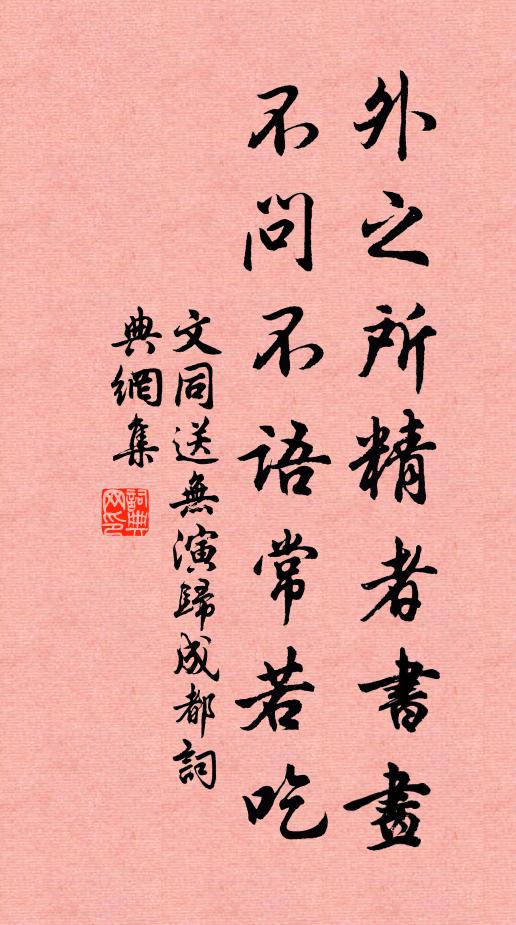 外之所精者書畫
不問不語常若吃
文同送無演歸成都詞
典網集
詞典網印